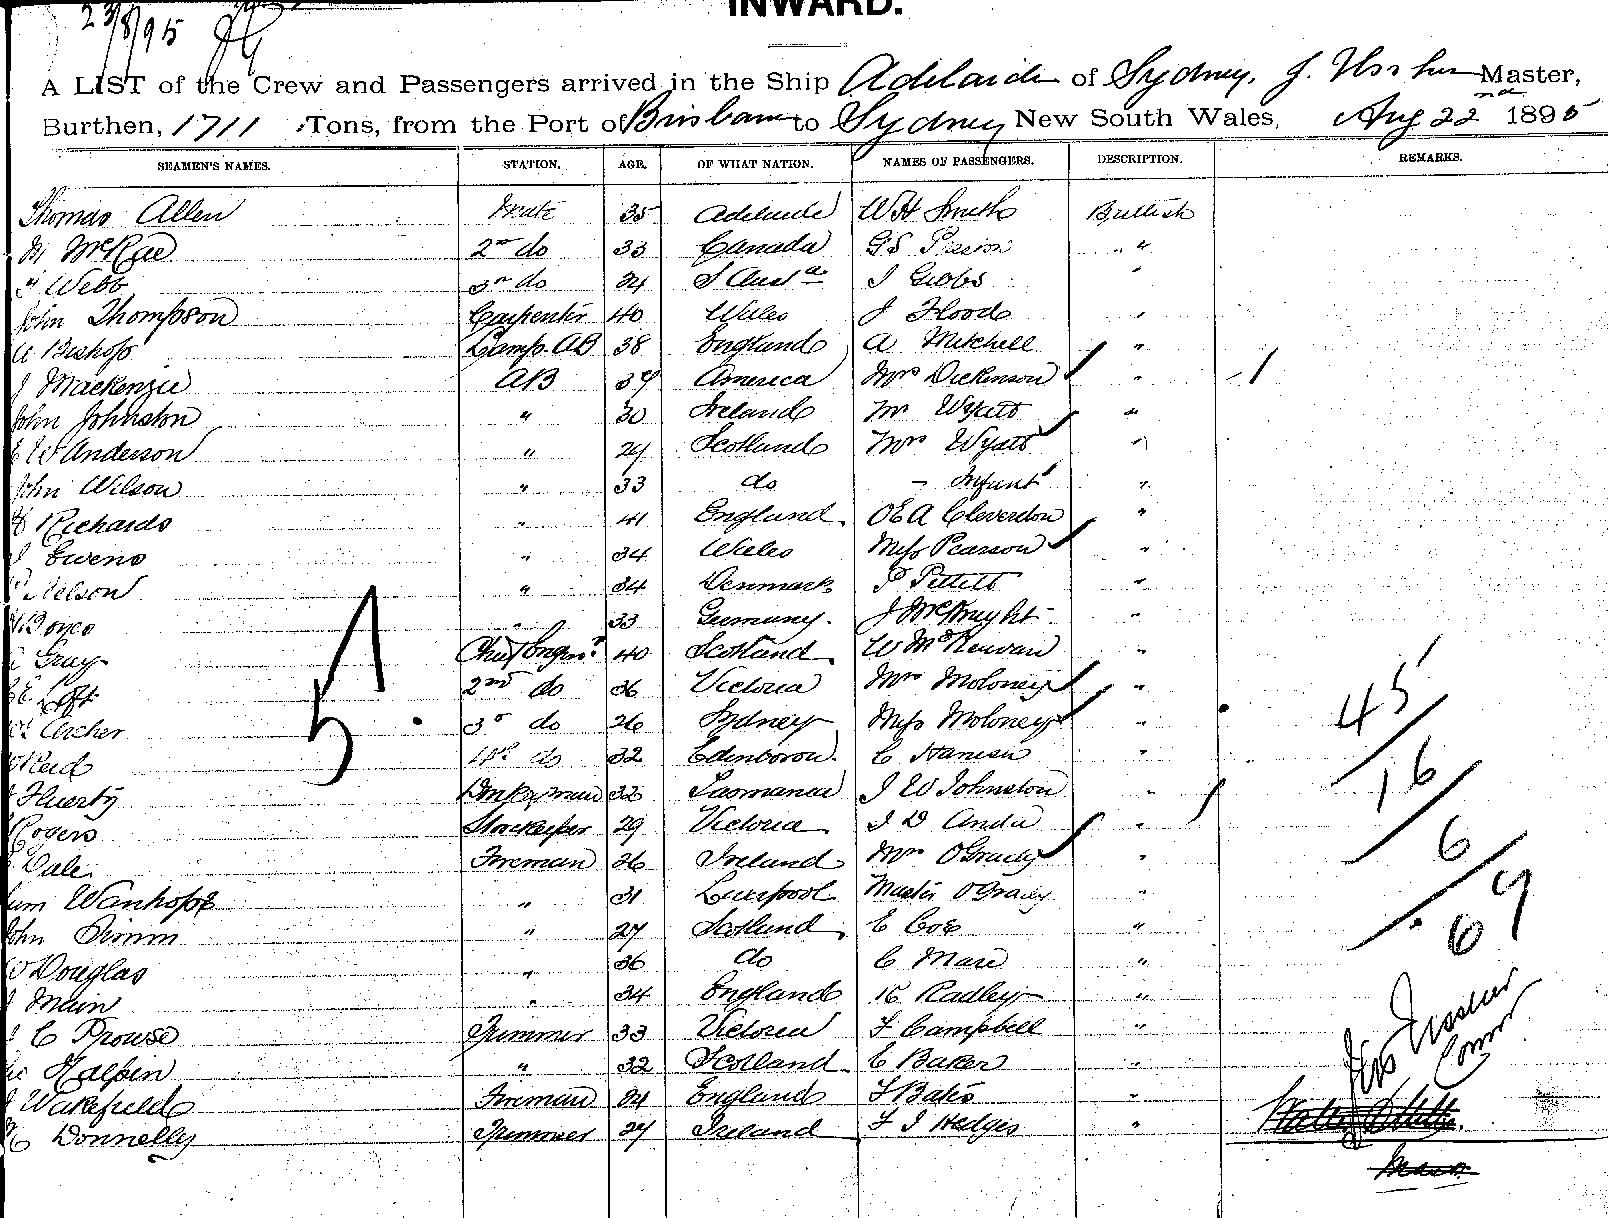 23/8/95
INWARD.
A LIST of the Crew and Passengers arrived in the Ship Adelaide of Sydney, J. Ussher Master,
Burthen, 1711 Tons, from the Port of Brisbane to Sydney New South Wales, Aug 22nd 1895
SEAMEN'S NAMES. STATION. AGE. OF WHAT NATION. NAMES OF PASSENGERS. DESCRIPTION. REMARKS.
Thomas Allen Mate 35 Adelaide W H Smith British
McRae 2nd do 33 Canada G S " "
Webb 3rd do 24 S Austa J Gibbs "
John Thompson Carpenter 40 Wales J Flood "
A Bishop Lamp. AB 38 England A Mitchell "
J Mackenzie AB America Mrs Dickenson "
John Johnston " 30 Ireland Mr Wyatt "
E W Anderson " 29 Scotland Mrs Wyatt "
John Wilson " 33 do - Infant "
Richards " 41 England O E A Cleverdon "
J Ewens " 34 Wales Miss Pearson "
Nelson " 34 Denmark P Pettett "
Boyce " 33 Germany. J "
Gray Chief Engnr 40 Scotland W "
2nd do 36 Victoria Mrs Moloney "
Archer 3rd do 26 Sydney Miss Moloney "
Reid 4th do 32 C "
Donkeyman Tasmania J W Johnston "
Rogers Storekeeper 29 Victoria J D "
Fireman 26 Ireland Mrs O'Grady "
Wanhope " 31 Liverpool Master O'Grady
John " 27 Scotland E Cox "
Douglas " 36 do C Mare "
J " 34 England Radley "
J C Prouse Trimmer 33 Victoria F Campbell "
Halpin " 32 Scotland C Baker "
J Wakefield Fireman 24 England F Bates "
Donnelly Trimmer Ireland F J Hedges "
45
16
6
67
Jno Ussher
Comm